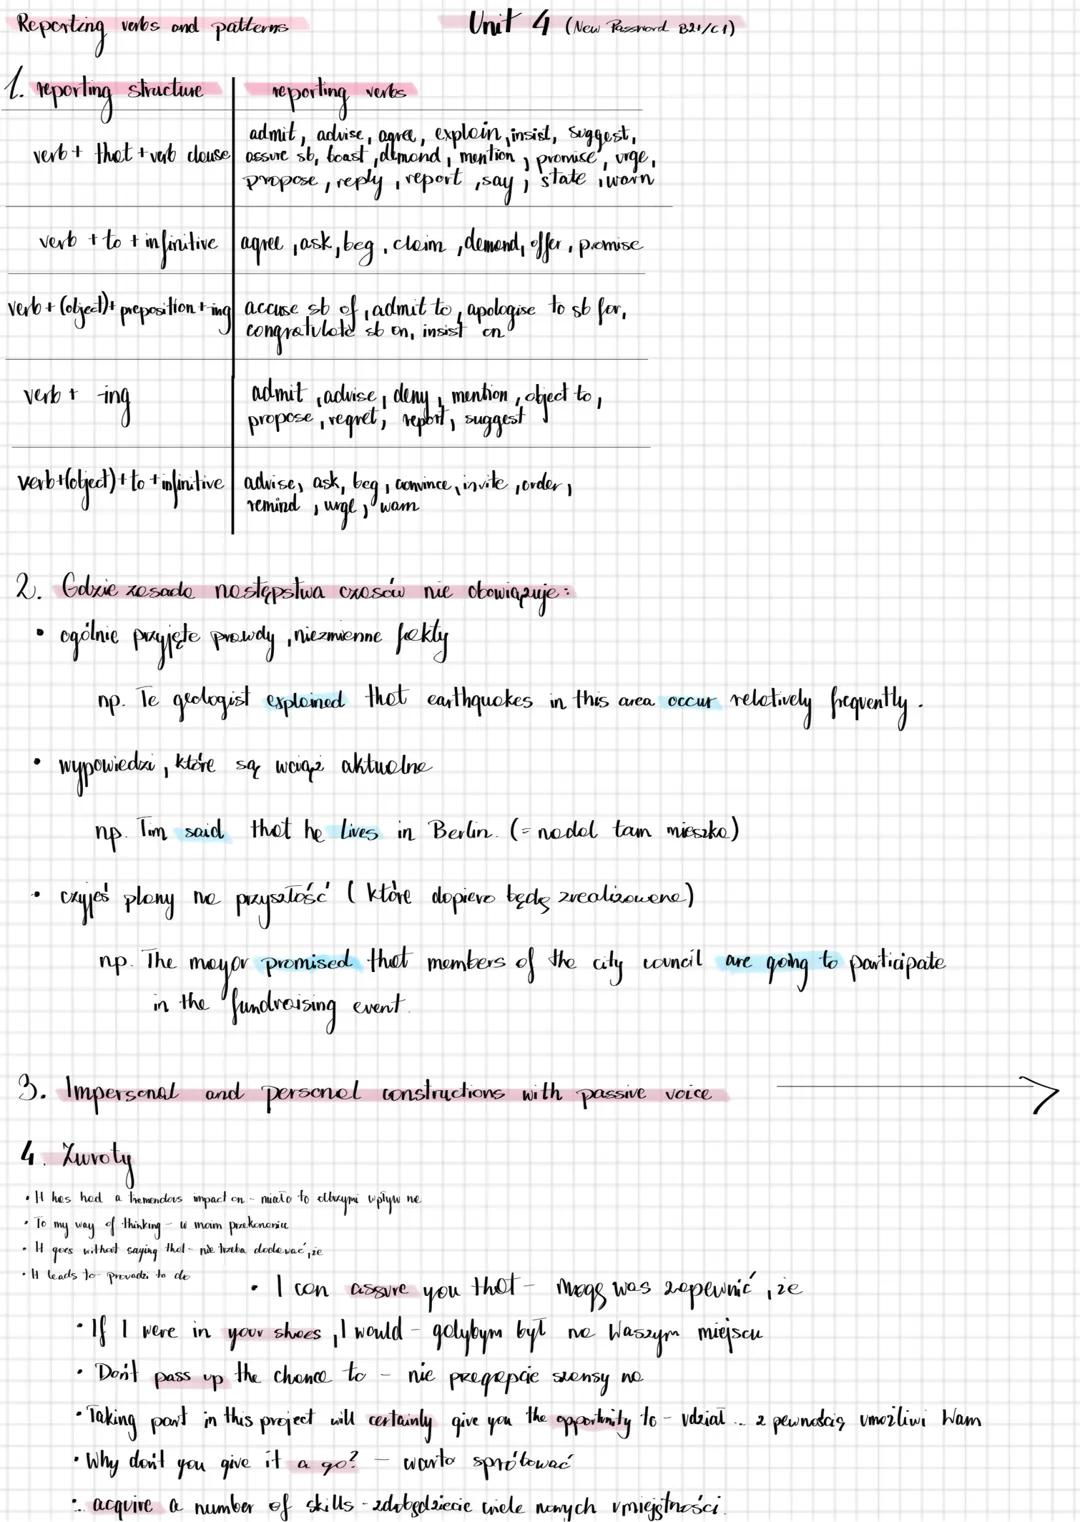 Reporting verbs and patterns
Unit 4 (New Password B2+/C1)
1. reporting structure
reporting verbs
verb + that + verb clause
admit, advise, agree, explain, insist, suggest,
assure sb, boast, demand, mention, promise, urge,
propose, reply, report, say, state, warn
verb + to + infinitive
agree, ask, beg, claim, demand, offer, promise
verb + (object) + preposition + ing
accuse sb of, admit to, apologise to sb for,
congratulate sb on, insist on
verb + -ing
admit, advise, deny, mention, object to,
propose, regret, report, suggest
verb + (object) + to + infinitive
advise, ask, beg, convince, invite, order,
remind, urge, warn
2. Gdzie zasada następstwa czasów nie obowiązuje:
• ogólnie przyjęte prawdy, niezmienne fakty
np. Te geologist explained that earthquakes in this area occur relatively frequently.
• wypowiedzi, które są wciąż aktualne
np. Tim said that he lives in Berlin. (= nadal tam mieszka)
• czyjeś plany na przyszłość (które dopiero będą zrealizowane)
np. The mayor promised that members of the city council are going to participate
in the fundraising event.
3. Impersonal and personal constructions with passive voice
4. Zwroty
• It has had a tremendous impact on - miało to olbrzymi wpływ na
• To my way of thinking - w moim przekonaniu
• It goes without saying that - nie trzeba dodawać, że
• It leads to - prowadzi to do
• I can assure you that - mogę was zapewnić, że
• If I were in your shoes, I would - gdybym był na Waszym miejscu
• Don't pass up the chance to - nie przegapcie szansy na
• Taking part in this project will certainly give you the opportunity to - udział ... z pewnością umożliwi Wam
• Why don't you give it a go? - warto spróbować
• acquire a number of skills - zdobędziecie wiele nowych umiejętności.